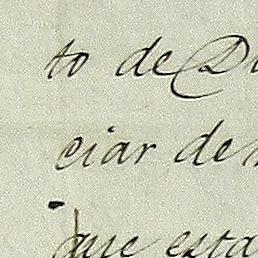 to de
ciar de
que esta